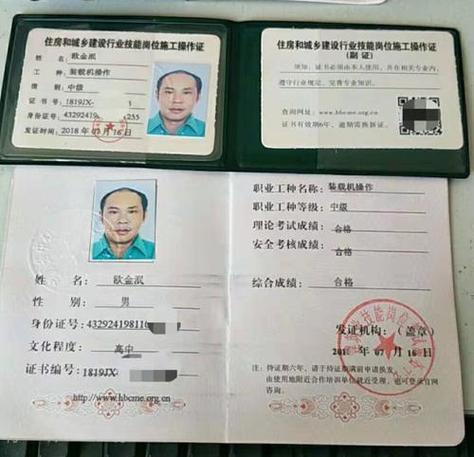 住房和城乡建设行业技能岗位施工操作证
姓 名： 欧金泯
工 种： 装载机操作
级 别： 中级
证 书 号： 1819JX- 1
身份证号： 43292419 255
发证时间： 2018 年 07 月 16 日
住房和城乡建设行业技能岗位施工操作证
（副 证）
须知：证书必须由本人使用，并在相关专业内，
遵守行业规定，完善专业知识。
查询网址：www.hbcme.org.cn
证书有效期6年，逾期需换新证。
姓 名： 欧金泯
性 别： 男
身份证号： 432924198110
文化程度： 高中
证书编号： 1819JX-
http://www.hbcme.org.cn
职业工种名称： 装载机操作
职业工种等级： 中级
理论考试成绩： 合格
安全考核成绩： 合格
综合成绩： 合格
发证机构：（盖章）
2018 年 07 月 16 日
注：持证期六年，请于持证期满前申请换发。
由使用地附近合作培训单位就近受理，也可登录官网
咨询。